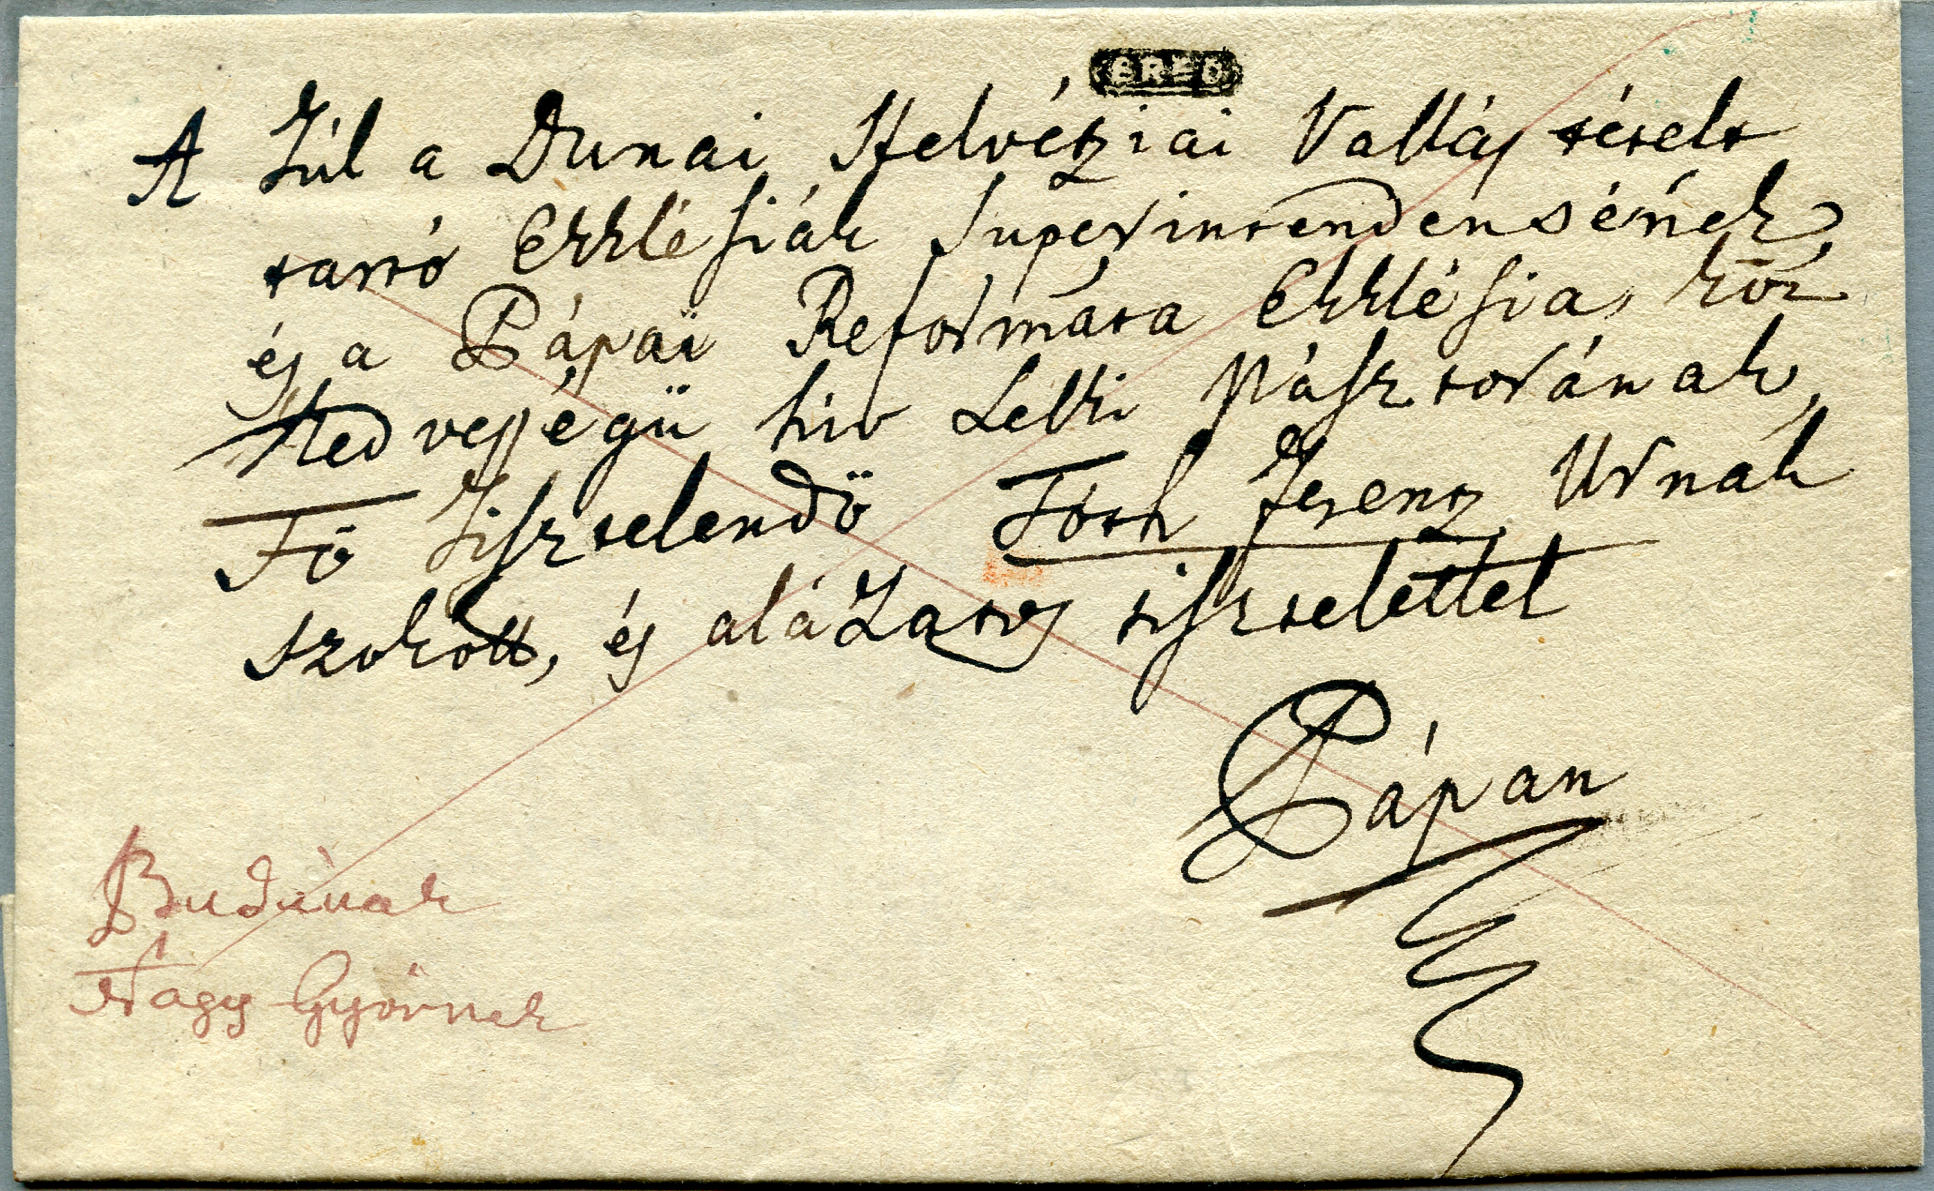 ERED
A Túl a Dunai Helvétziai Vallás tételt
tartó Ekklésiák Superintendensének,
és a Pápai Reformata Ekklésia, köz
Kedvességü hív Lelki Pásztorának,
Fő Tisztelendö Tóth Ferentz Urnak
szokott, és alázatos tisztelettel
Pápan
Budának
Nagy Györnek